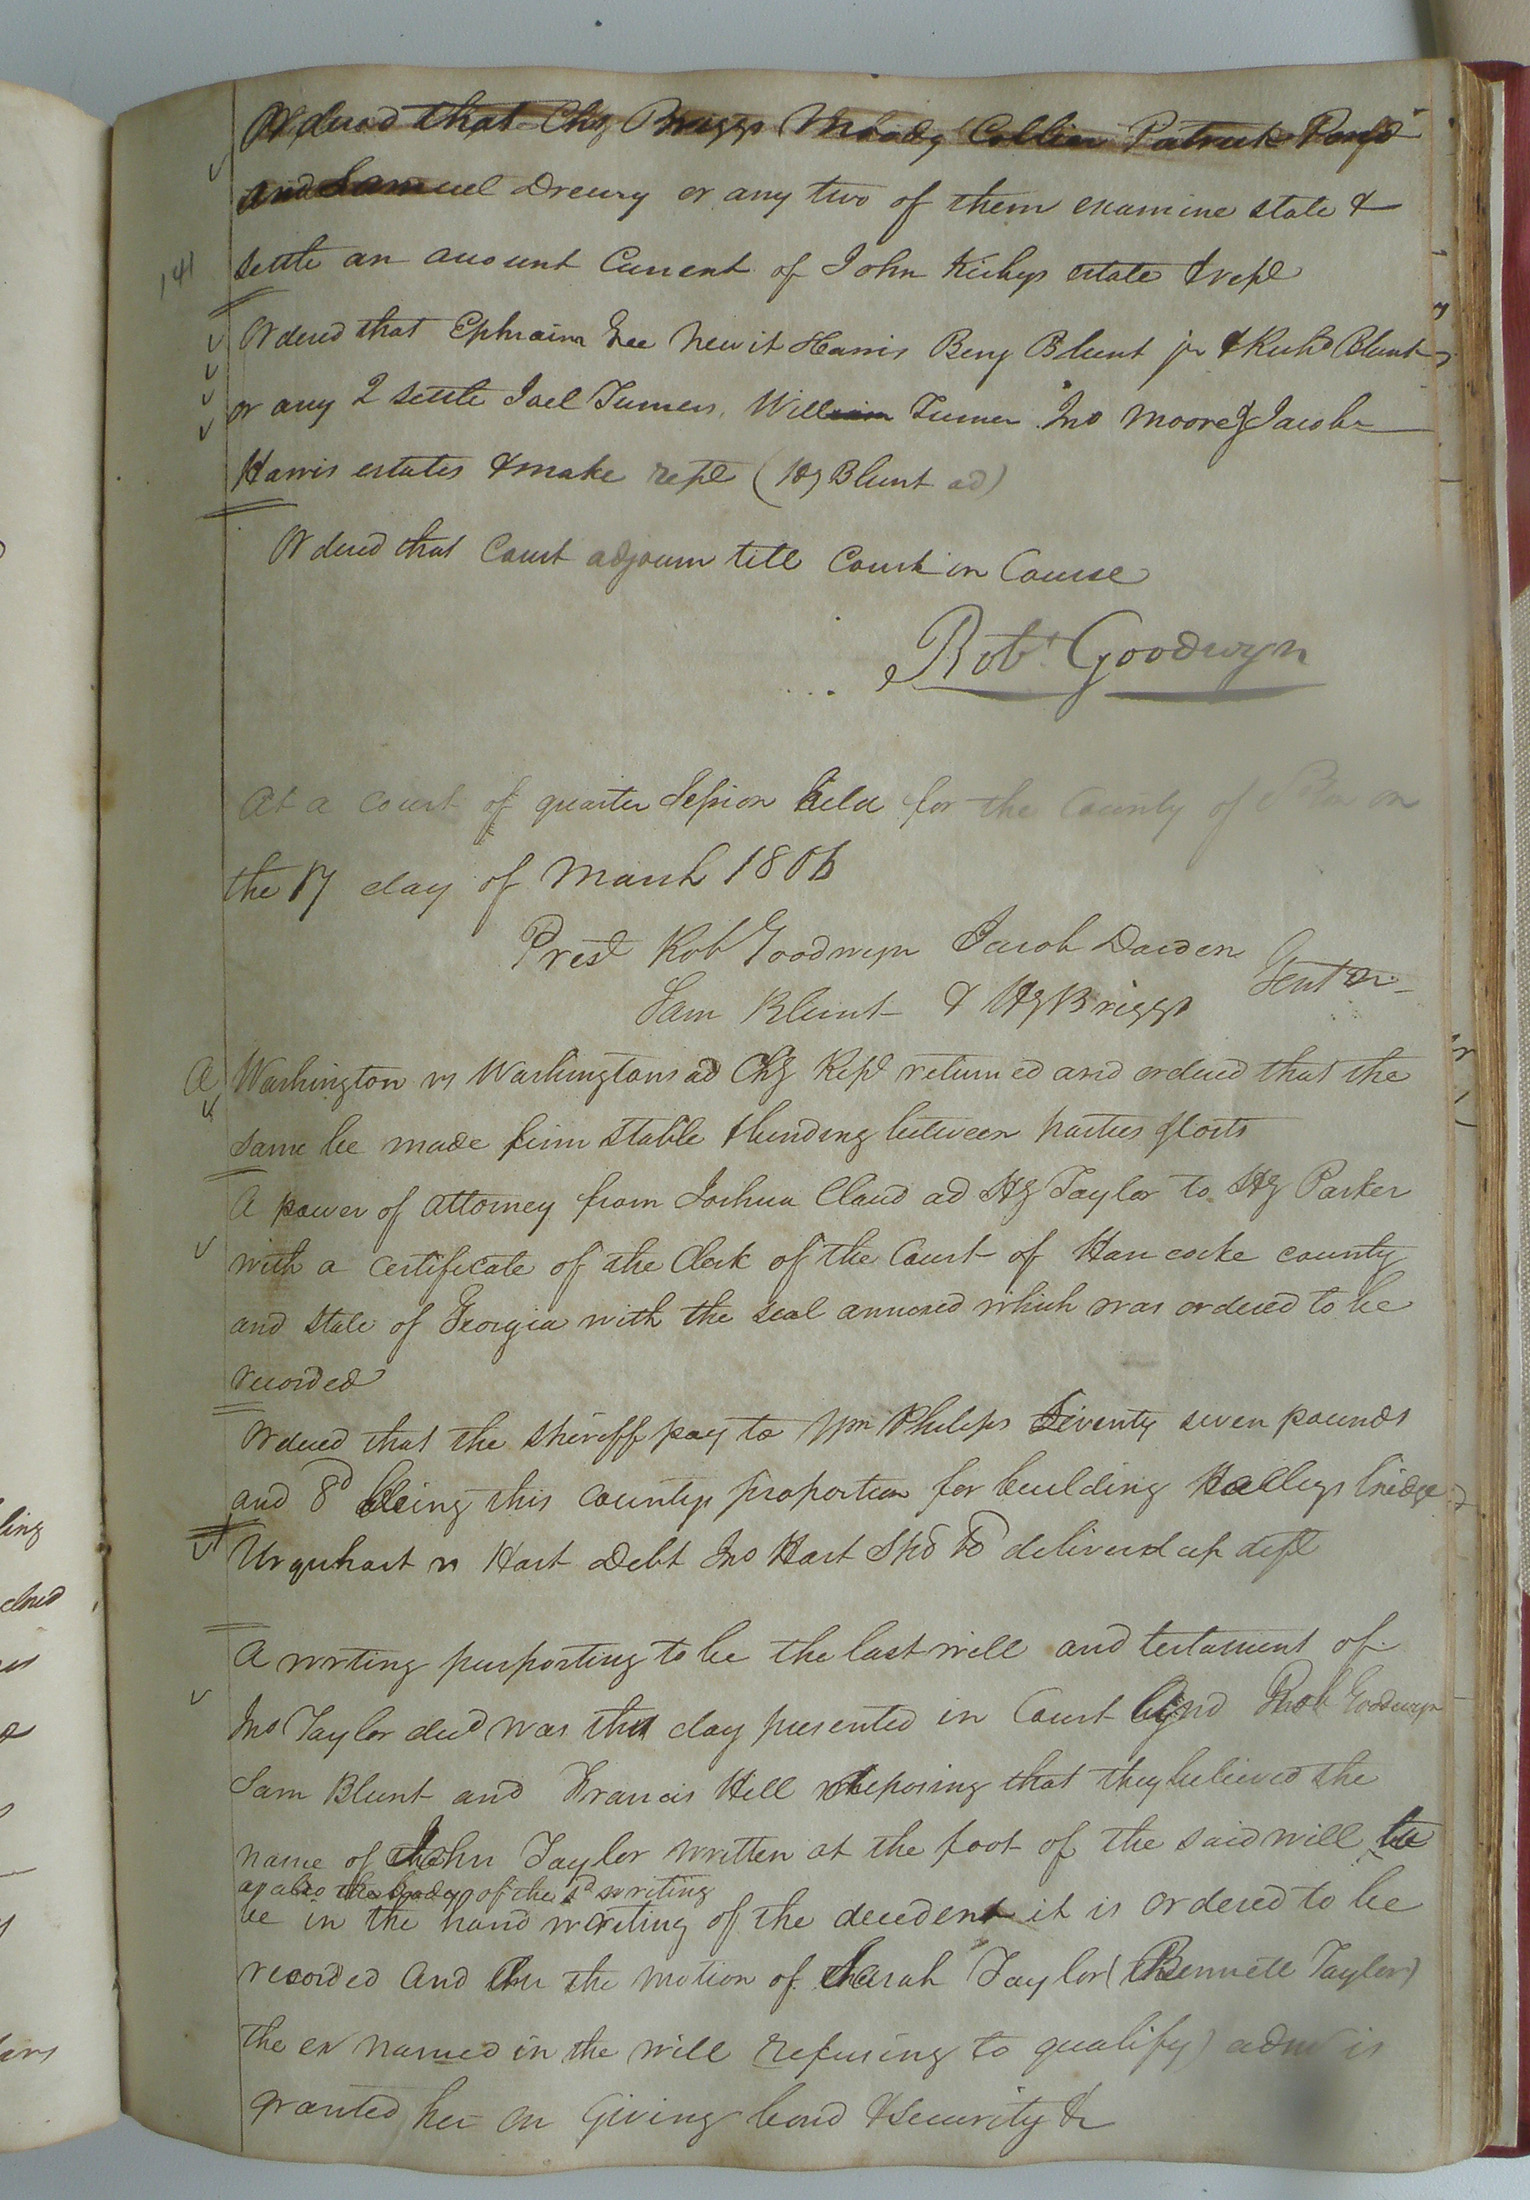 Ordered that Chs Briggs Moody Collier Patrick Pond
and Samuel Drewry or any two of them examine state &
settle an account Current of John Kirbys estate & rept
141
Ordered that Ephraim Gee Newit Harris Benj Blunt jr & Richd Blunt
or any 2 settle Joel Turners, William Turner Jno Moore & Jacob
Harris estates & make rept (Hy Blunt ad)
Ordered that Court adjourn till Court in Course
Robt Goodwyn
At a Court of quarter Session held for the County of on
the 17 day of March 1806
Prest Rob Goodwyn Jacob Darden
Gentn
Sam Blunt & Hy Briggs
a Washington vs Washingtons ad Chy Rept returned and ordered that the
same be made firm stable & binding between parties & costs
A power of attorney from Joshua Claud ad Hy Taylor to Hy Parker
with a certificate of the Clerk of the Court of Hancocke county
and state of Georgia with the seal annexed which was ordered to be
recorded
Ordered that the Sheriff pay to Wm Philips Seventy seven pounds
and 8d being this countys proportion for building bridge
Urquhart vs Hart Debt Jno Hart delivered up deft
A writing purporting to be the last will and testament of
Jno Taylor decd was this day presented in Court and Rob Goodwyn
Sam Blunt and Francis Hill deposing that they believed the
name of John Taylor written at the foot of the said will to
as also the body of the sd writing
be in the hand writing of the decedent it is ordered to be
recorded And on the motion of Sarah Taylor (Bennett Taylor)
the ex named in the will refusing to qualify) admr is
granted her on Giving bond & security &